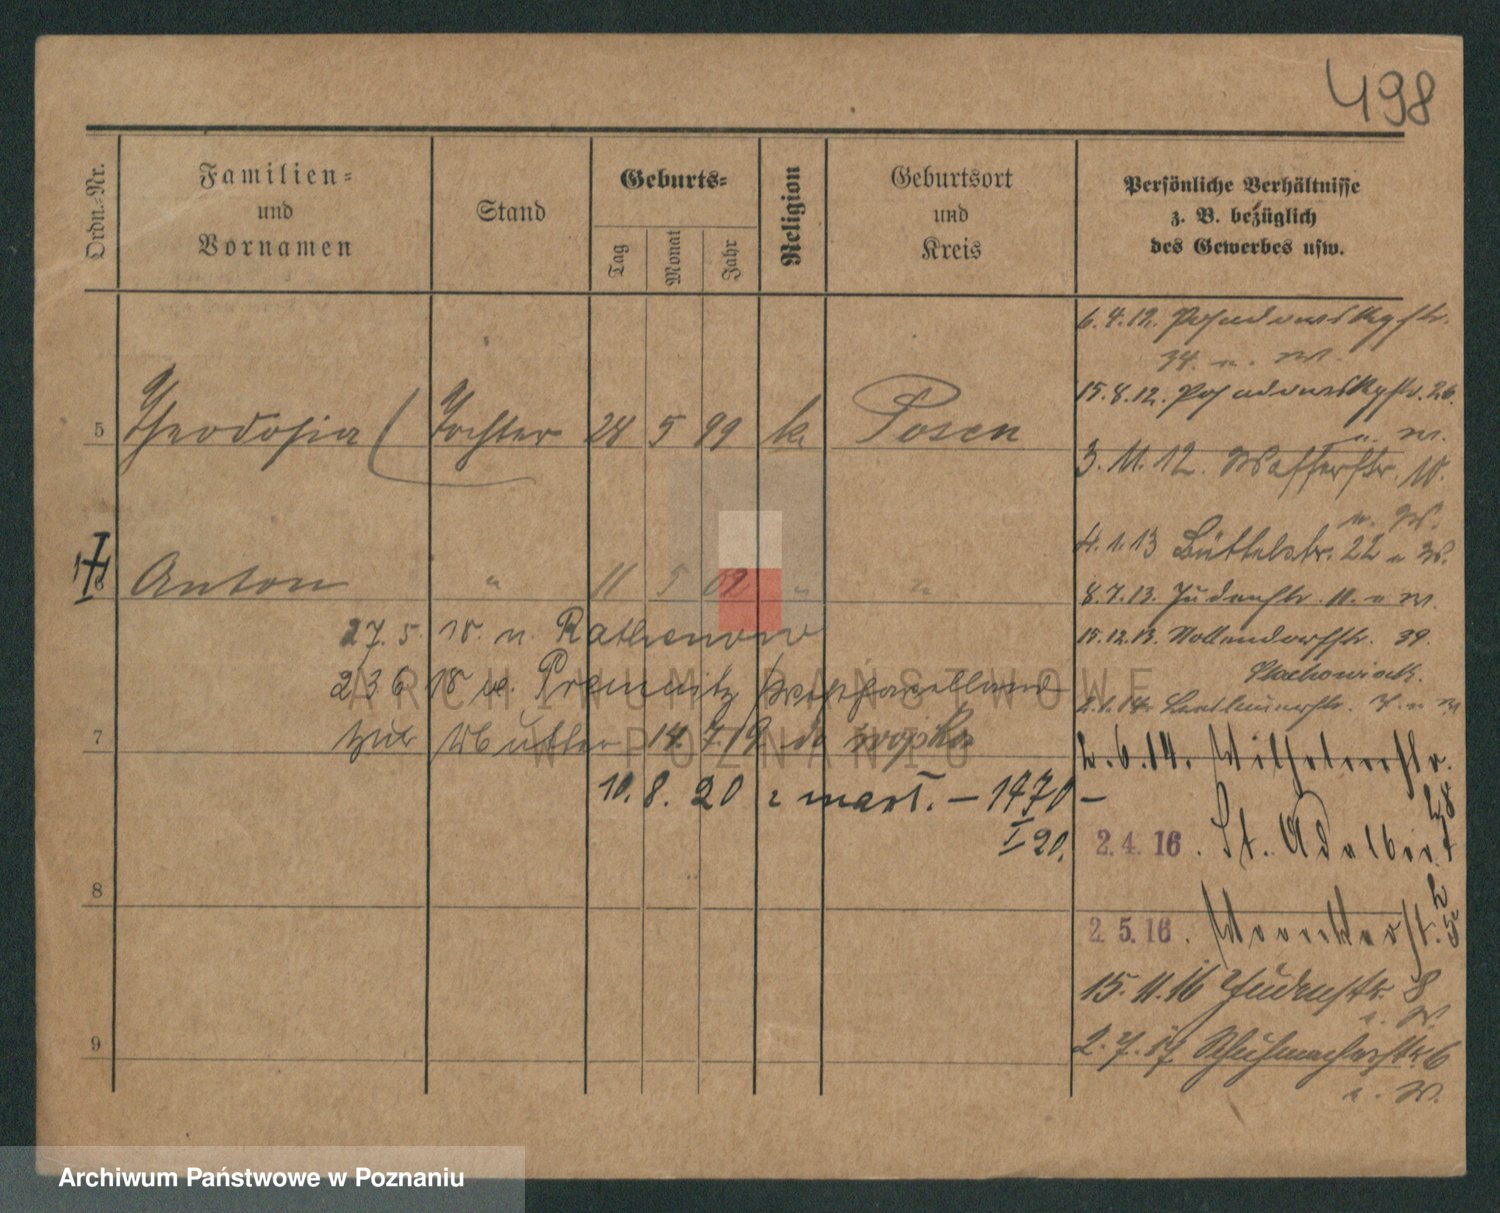 498
Ordn.-Nr.
Familien-
und
Vornamen
Stand
Geburts-
Tag
Monat
Jahr
Religion
Geburtsort
und
Kreis
Persönliche Verhältnisse
z. B. bezüglich
des Gewerbes usw.
5 Theodosia Tochter 28 5 99 k. Posen
6 Anton " 11 5 02 " "
27. 5. 18. n. Rathenow
23 6 18 n. Premnitz Westhavelland
zur Mutter 14. 7. 19 do wojska
7
10. 8. 20 z mart. – 1470 –
I 20.
8
9
6. 4. 12. Posadowskystr.
34. n. W.
15. 8. 12. Posadowskystr. 26.
n. W.
3. 11. 12. Wasserstr. 10.
n. W.
4. 1. 13 Büttelstr. 22 n W.
8. 7. 13. Judenstr. 11. n W.
15. 12. 13. Nollendorfstr. 39.
Stachowiak.
2. 6. 14. Wilhelmstr.
28
2. 4. 16. St. Adalbert
2. 5. 16.
15. 11. 16 Judenstr. 8
n. W.
2. 7. 17 Schuhmacherstr. 6
n. W.
ARCHIWUM PAŃSTWOWE
W POZNANIU
Archiwum Państwowe w Poznaniu